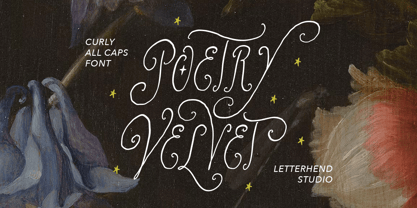 CURLY
ALL CAPS
FONT
POETRY
VELVET
LETTERHEND
STUDIO